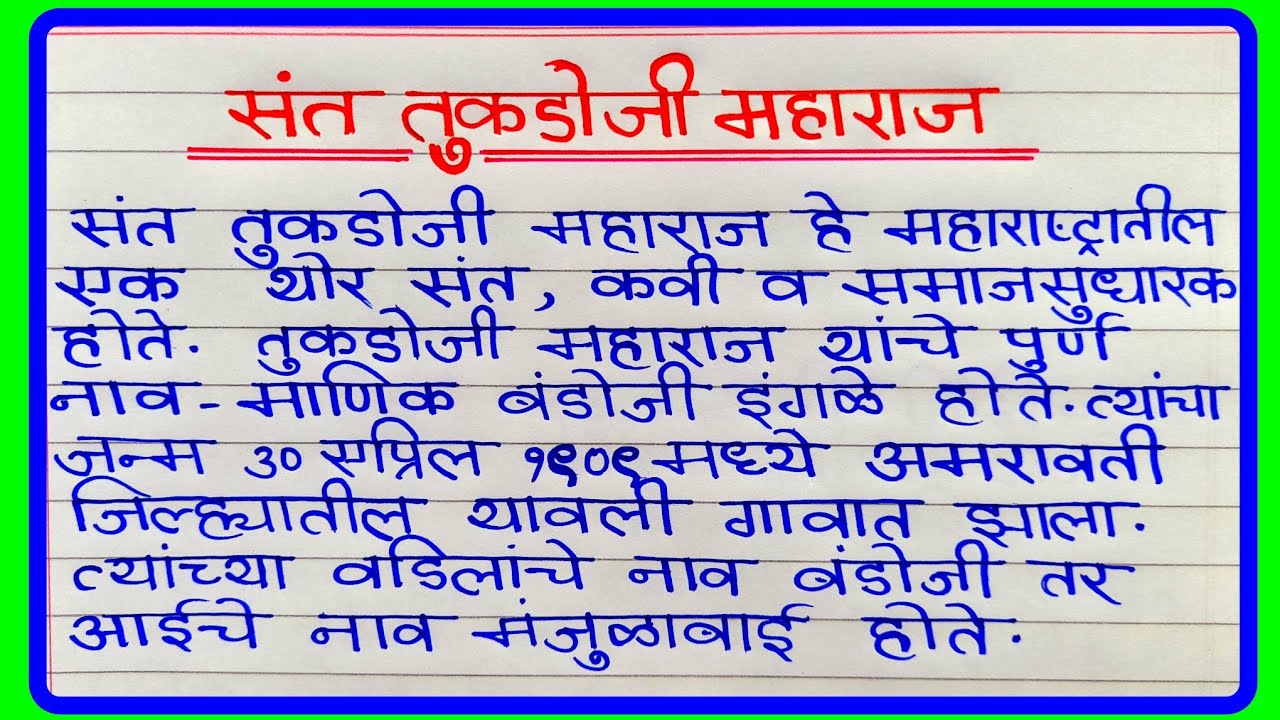 संत तुकडोजी महाराज
संत तुकडोजी महाराज हे महाराष्ट्रातील
एक थोर संत, कवी व समाजसुधारक
होते. तुकडोजी महाराज यांचे पुर्ण
नाव - माणिक बंडोजी इंगळे होते. त्यांचा
जन्म ३० एप्रिल १९०९ मध्ये अमरावती
जिल्ह्यातील यावली गावात झाला.
त्यांच्या वडिलांचे नाव बंडोजी तर
आईचे नाव मंजुळाबाई होते.